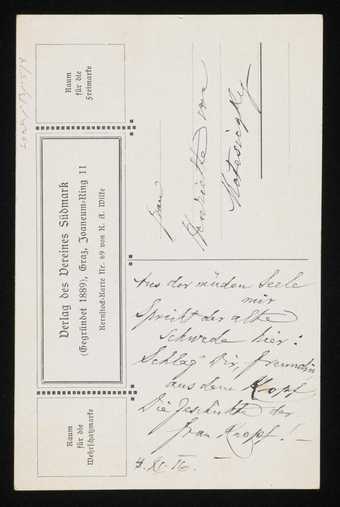 Raum
für die
Freimarke
Verlag des Vereines Südmark
(Gegründet 1889), Graz, Joaneum-Ring 11
Kernstock-Karte Nr. 69 von R. A. Wilke
Raum
für die
Wehrschatzmarke
Frau
Henriette von
Aus der müden Seele
mir
Spricht der alte
Schwede hier:
Schlag' Dir, Freundin,
aus dem Kopf,
Die Geschichte der
Frau Knopf! –